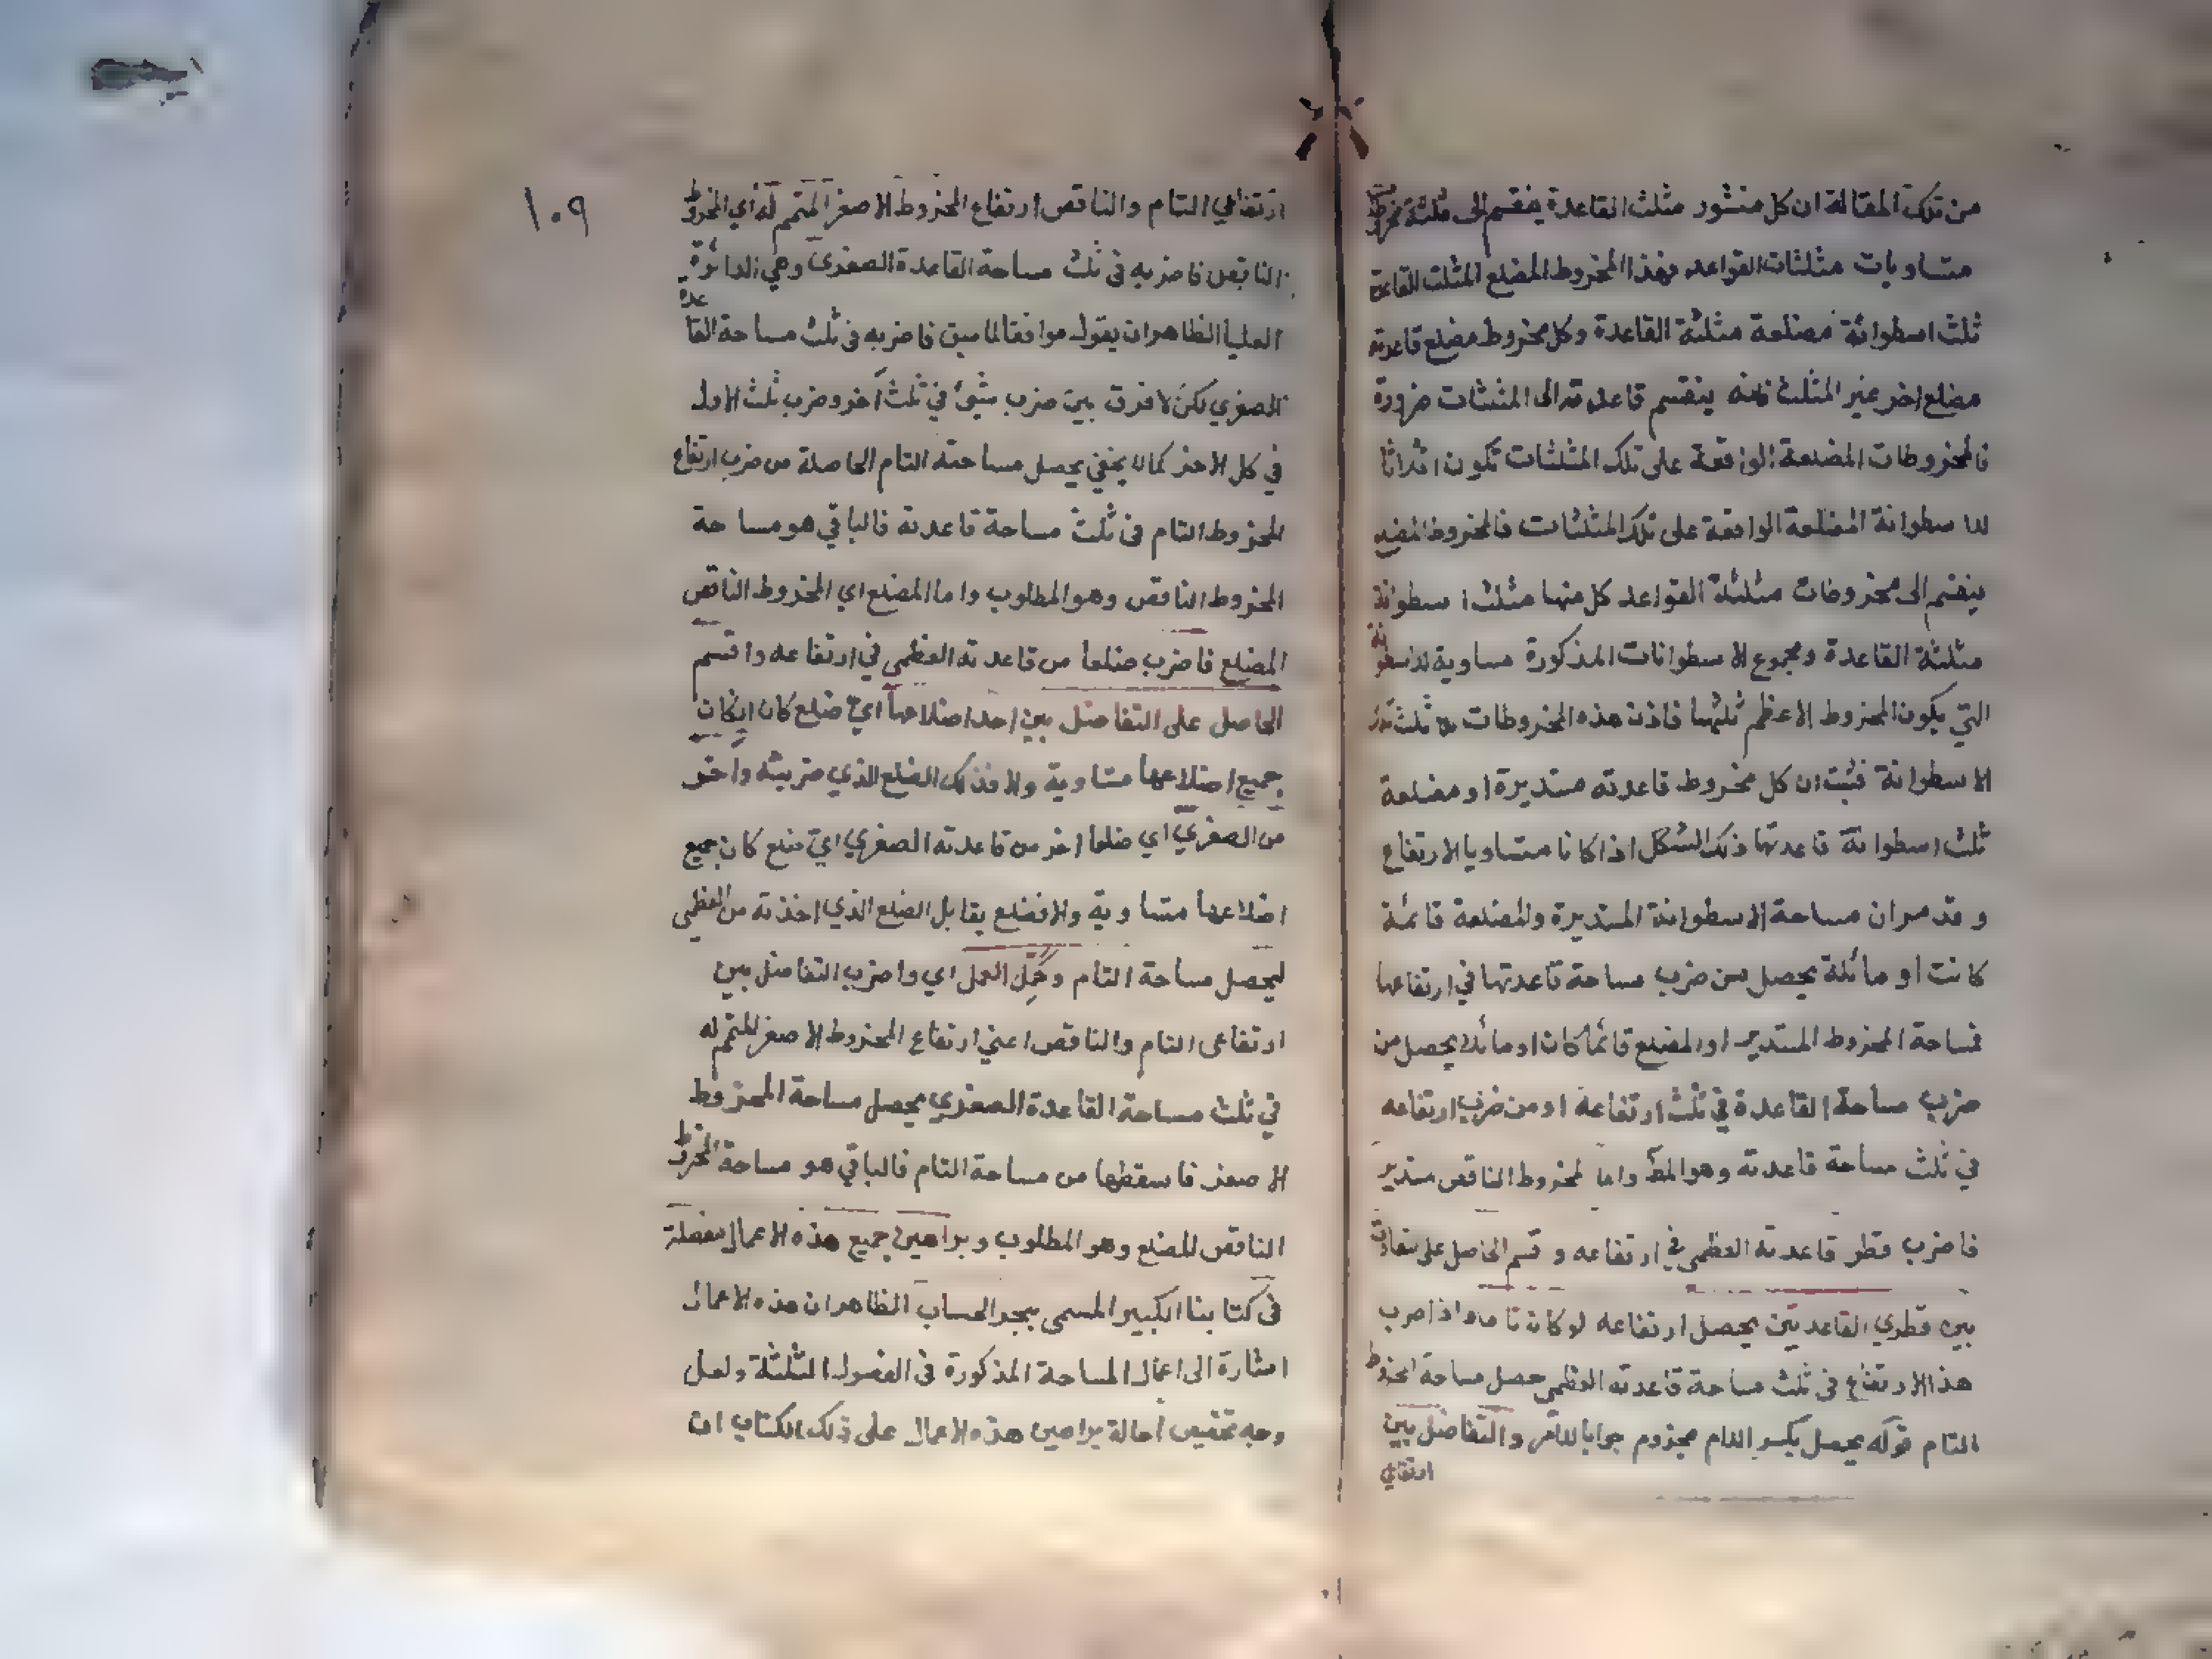 من تلك المقالة ان كل منشور مثلث القاعدة ينقسم الى ثلثة مخروطات
متساويات مثلثات القواعد فهذا المخروط المضلع المثلث القاعدة
ثلث اسطوانة مضلعة مثلثة القاعدة وكل مخروط مضلع قاعدته
مضلع اخر غير المثلث فانه ينقسم قاعدته الى المثلثات ضرورة
فالمخروطات المضلعة الواقعة على تلك المثلثات تكون اثلاثا
للاسطوانة المضلعة الواقعة على تلك المثلثات فالمخروط المضلع
ينقسم الى مخروطات مثلثة القواعد كل منها مثلث اسطوانة
مثلثة القاعدة ومجموع الاسطوانات المذكورة مساوية للاسطوانة
التي يكون المخروط الاعظم ثلثها فاذن هذه المخروطات ثلث
الاسطوانة فثبت ان كل مخروط قاعدته مستديرة او مضلعة
ثلث اسطوانة قاعدتها ذلك الشكل اذا كانا متساويا الارتفاع
وقد مر ان مساحة الاسطوانة المستديرة والمضلعة قائمة
كانت او مائلة يحصل من ضرب مساحة قاعدتها في ارتفاعها
فمساحة المخروط المستدير او المضلع قائما كان او مائلا يحصل من
ضرب مساحة القاعدة في ثلث ارتفاعه او من ضرب ارتفاعه
في ثلث مساحة قاعدته وهو المط واما المخروط الناقص مستدير
فاضرب قطر قاعدته العظمى في ارتفاعه وقسم الحاصل على تفاوت
بين قطري القاعدتين يحصل ارتفاعه لو كان تاما واذا ضرب
هذا الارتفاع في ثلث مساحة قاعدته العظمى حصل مساحة المخروط
التام قوله يحصل بكسر اللام مجزوم جوابا للامر والتفاضل بين
ارتفاعي
١٠٩
ارتفاعي التام والناقص ارتفاع المخروط الاصغر المتمم له اي المخروط
الناقص فاضربه في ثلث مساحة القاعدة الصغرى وهي الدائرة
العليا الظاهر ان يقول موافقا لما سبق فاضربه في ثلث مساحة القاعدة
الصغرى لكن لا فرق بين ضرب شيئ في ثلث آخر وضرب ثلث الاول
في كل الاخر كما لا يخفى يحصل مساحته التام الحاصلة من ضرب ارتفاع
المخروط التام في ثلث مساحة قاعدته فالباقي هو مساحة
المخروط الناقص وهو المطلوب واما المضلع اي المخروط الناقص
المضلع فاضرب ضلعا من قاعدته العظمى في ارتفاعه واقسم
الحاصل على التفاضل بين احد اضلاعها اي ضلع كان ان كان
جميع اضلاعها متساوية والا فذلك الضلع الذي ضربته وآخر
من الصغرى اي ضلعا اخر من قاعدته الصغرى اي ضلع كان جميع
اضلاعها متساوية والا فضلع يقابل الضلع الذي اخذته من العظمى
ليحصل مساحة التام وكمل العمل اي واضرب التفاضل بين
ارتفاعى التام والناقص اعني ارتفاع المخروط الاصغر المتمم له
في ثلث مساحة القاعدة الصغرى يحصل مساحة المخروط
الاصغر فاسقطها من مساحة التام فالباقي هو مساحة المخروط
الناقص المضلع وهو المطلوب وبراهين جميع هذه الاعمال مفصلة
في كتابنا الكبير المسمى ببحر الحساب الظاهر ان هذه الاعمال
اشارة الى اعمال المساحة المذكورة في الفصول الثلثة ولعل
وجه تخصيص احالة براهين هذه الاعمال على ذلك الكتاب ان